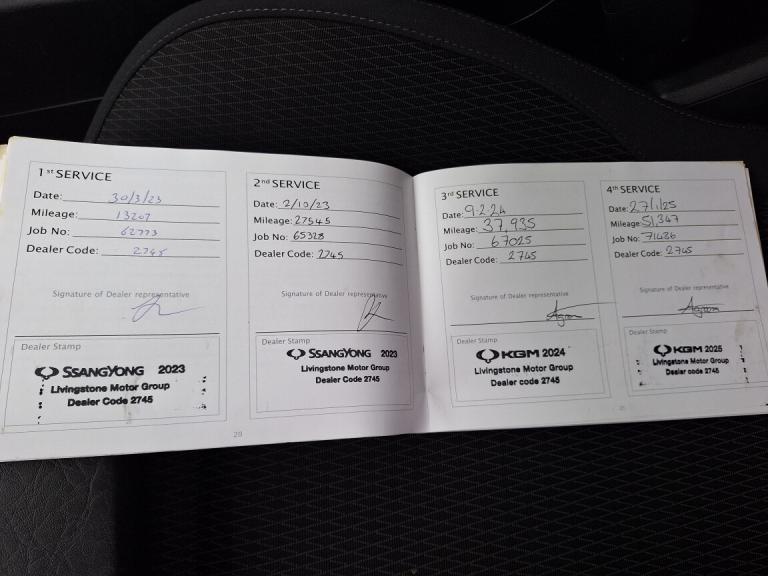 1st SERVICE
Date: 30/3/23
Mileage: 13207
Job No: 62773
Dealer Code: 2745
Signature of Dealer representative
Dealer Stamp
SSANGYONG 2023
Livingstone Motor Group
Dealer Code 2745
2nd SERVICE
Date: 2/10/23
Mileage: 27545
Job No: 65328
Dealer Code: 2745
Signature of Dealer representative
Dealer Stamp
SSANGYONG 2023
Livingstone Motor Group
Dealer Code 2745
28
3rd SERVICE
Date: 9.2.24
Mileage: 37,935
Job No: 67025
Dealer Code: 2745
Signature of Dealer representative
Dealer Stamp
KGM 2024
Livingstone Motor Group
Dealer code 2745
4th SERVICE
Date: 27/1/25
Mileage: 51,347
Job No: 71426
Dealer Code: 2745
Signature of Dealer representative
Dealer Stamp
KGM 2025
Livingstone Motor Group
Dealer code 2745